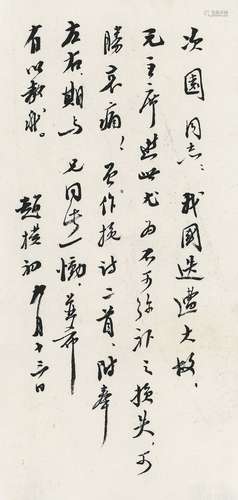 次園同志：我國迭遭大故，
毛主席逝世尤为不可弥补之损失，可
勝哀痛！曾作挽诗二首，附奉
左右，期与 兄同声一恸，并希
有以教我。
趙樸初 九月十三日